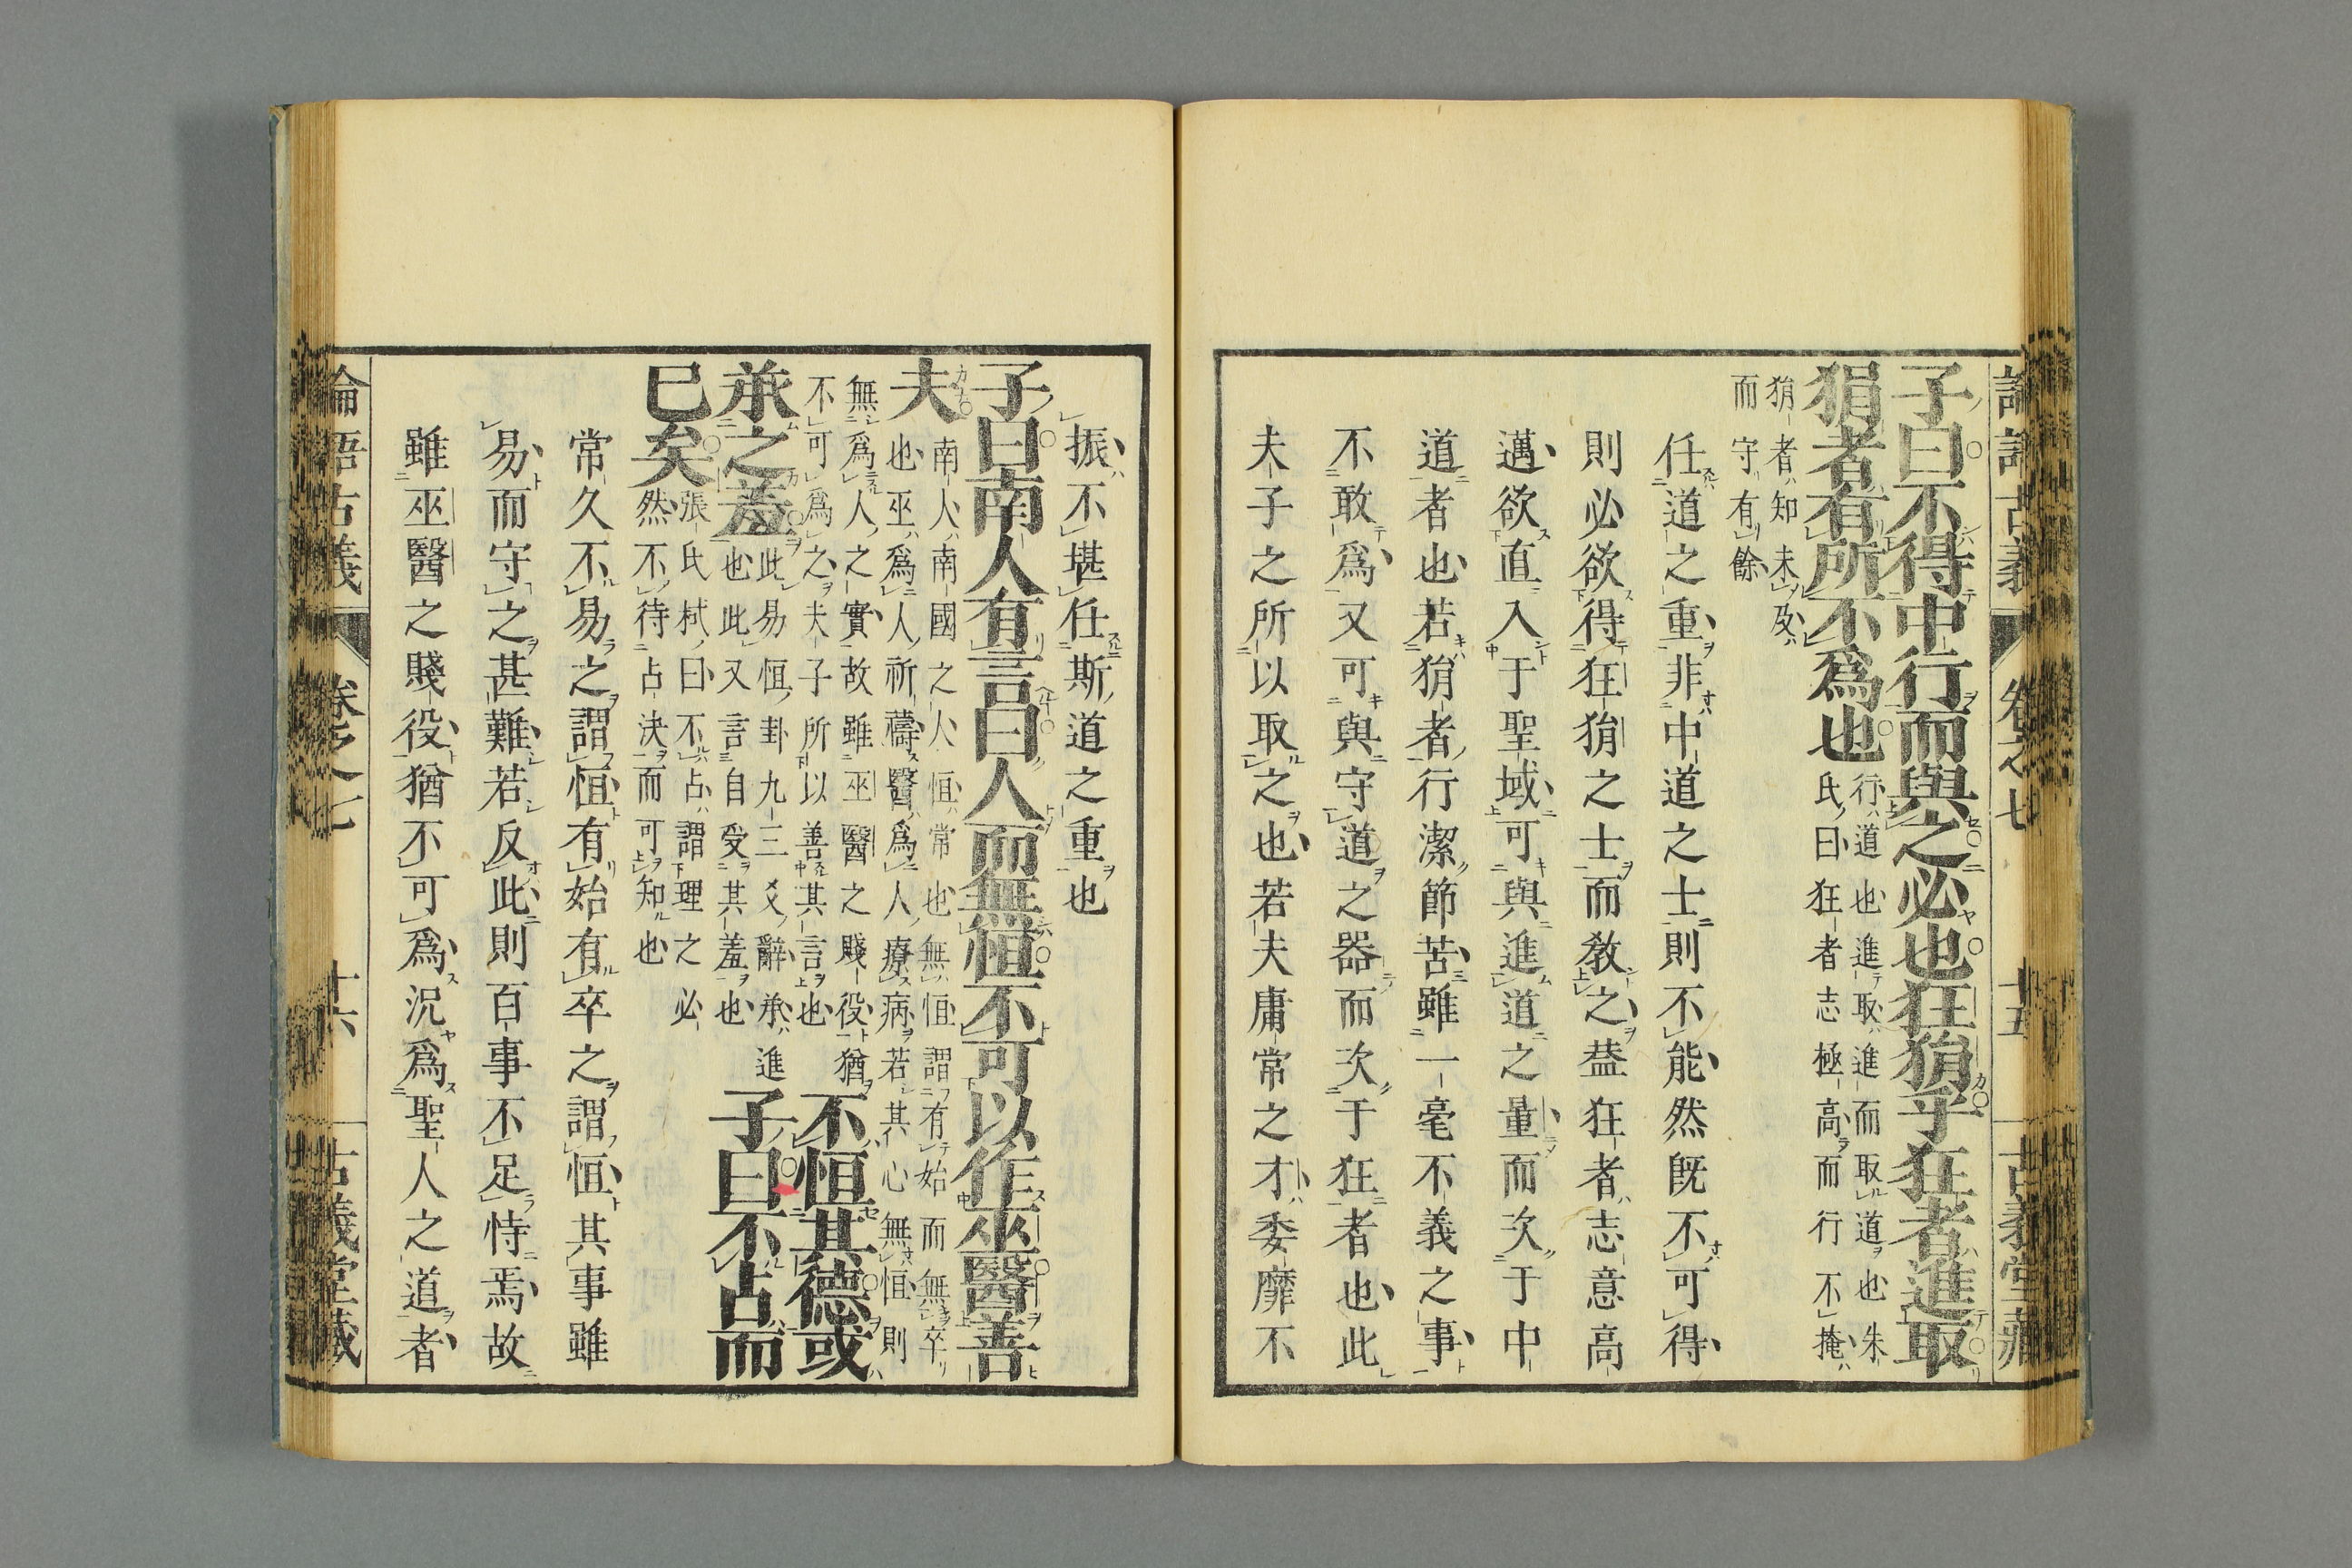 論語古義 卷之七 十五 古義堂藏
子曰不得中行而與之必也狂狷乎狂者進取
狷者有所不爲也
行道也進取進而取道也朱
氏曰狂者志極高而行不掩
狷者知未及
而守有餘
任道之重非中道之士則不能然既不可得
則必欲得狂狷之士而教之葢狂者志意高
邁欲直入于聖域可與進道之量而次于中
道者也若狷者行潔節苦雖一毫不義之事
不敢爲又可與守道之器而次于狂者也此
夫子之所以取之也若夫庸常之才委靡不
振不堪任斯道之重也
子曰南人有言曰人而無恒不可以作巫醫善
夫
南人南國之人恒常也無恒謂有始而無卒
也巫爲人祈禱醫爲人療病若其心無恒則
無爲人之實故雖巫醫之賤役猶
不可爲之夫子所以善其言也
不恒其德或
承之羞
此易恒卦九三爻辭承進
也此又言自受其羞也
子曰不占而
已矣
張氏栻曰不占謂理之必
然不待占決而可知也
常久不易之謂恒有始有卒之謂恒其事雖
易而守之甚難若反此則百事不足恃焉故
雖巫醫之賤役猶不可爲況爲聖人之道者
論語古義 卷之七 十六 古義堂藏